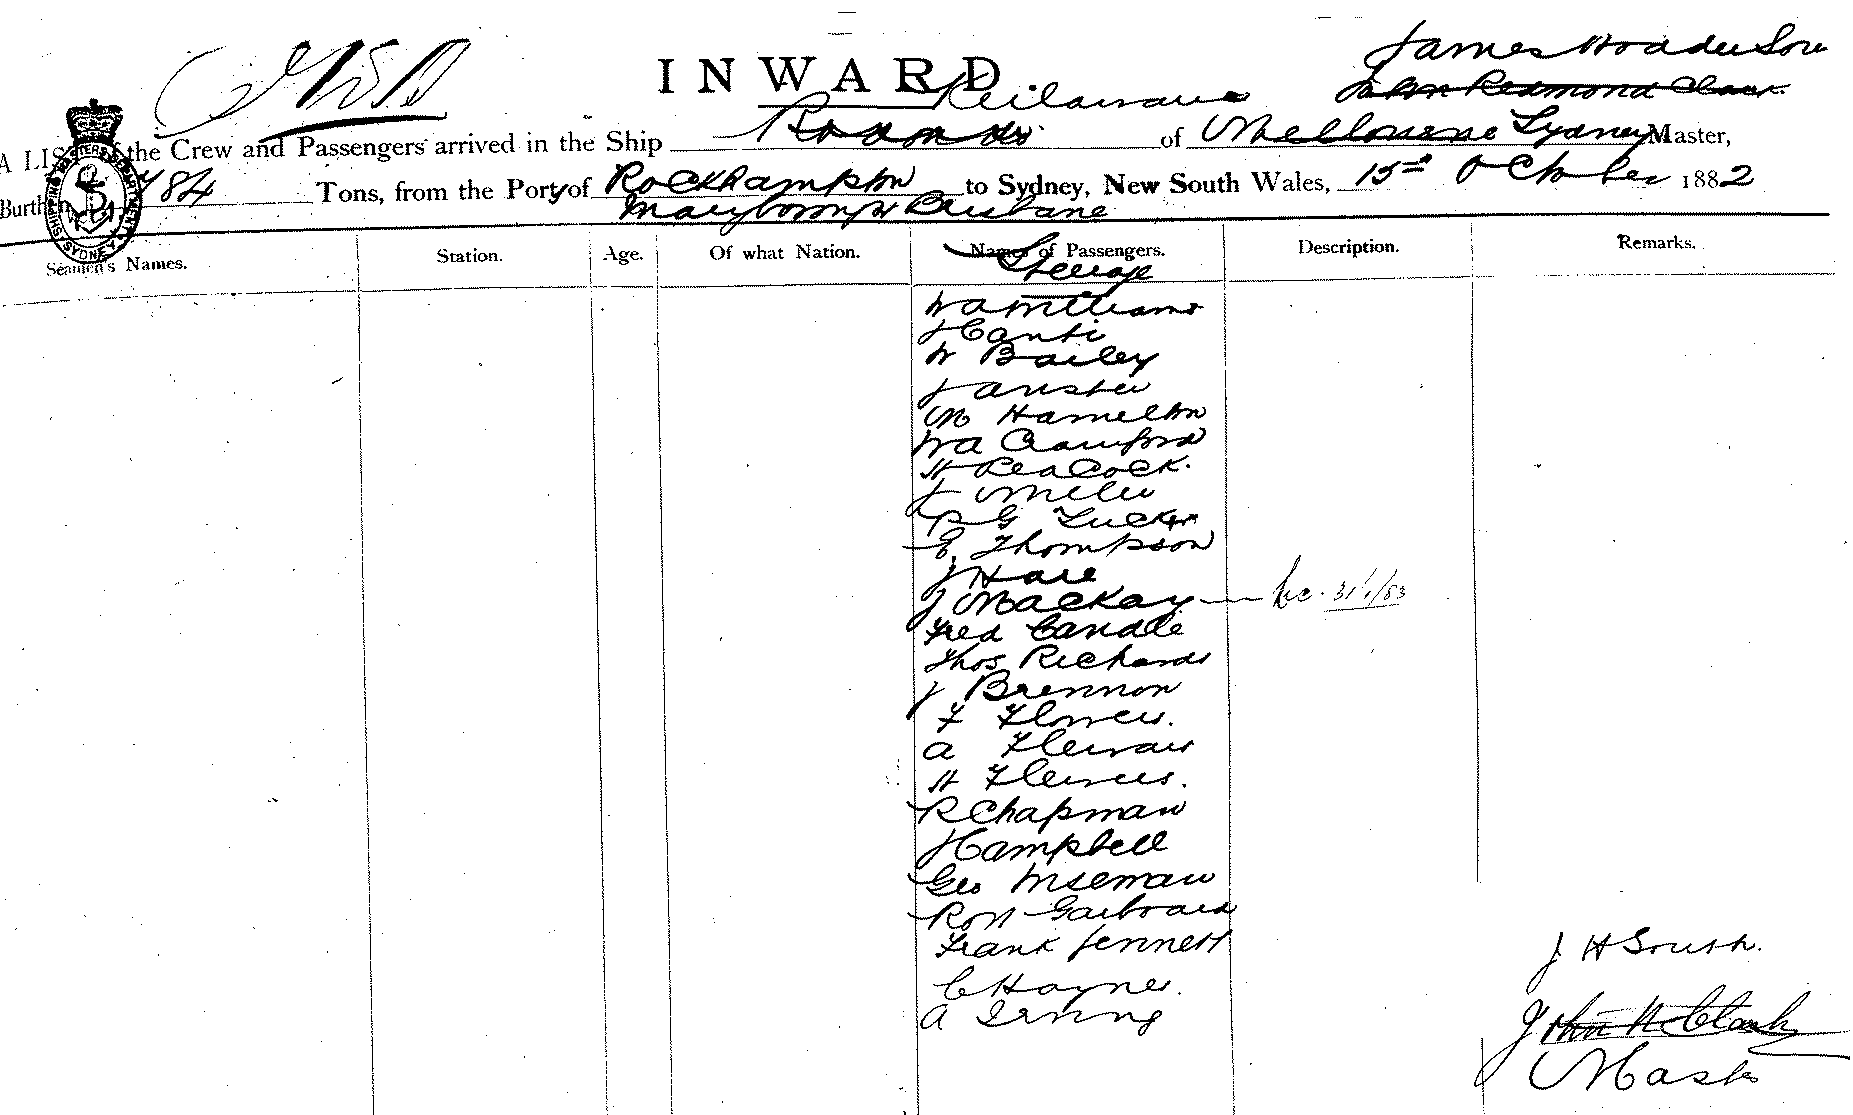 INWARD
James
John Redmond Clark.
A LIST of the Crew and Passengers arrived in the Ship of Melbourne Sydney Master,
Burthen 784 Tons, from the Port of Rockhampton to Sydney, New South Wales, 15th October 1882
Maryboro & Brisbane
Seamen's Names. Station. Age. Of what Nation. Names of Passengers. Description. Remarks.
Steerage
W A Williams
J Canti
W Bailey
J
M Hamelton
W A Crawford
H Peacock.
J Miller
P G Tucker
E Thompson
J Hare
J Mackay 31/1/83
Fred Candle
Thos Richards
J Brennon
F Flowers.
A
H
R Chapman
J Campbell
Geo Wiseman
Robt
Frank Jennett
C Haynes.
A Irving
J H South.
John R Clark
Master
SHIPPING MASTER'S DEPARTMENT SYDNEY